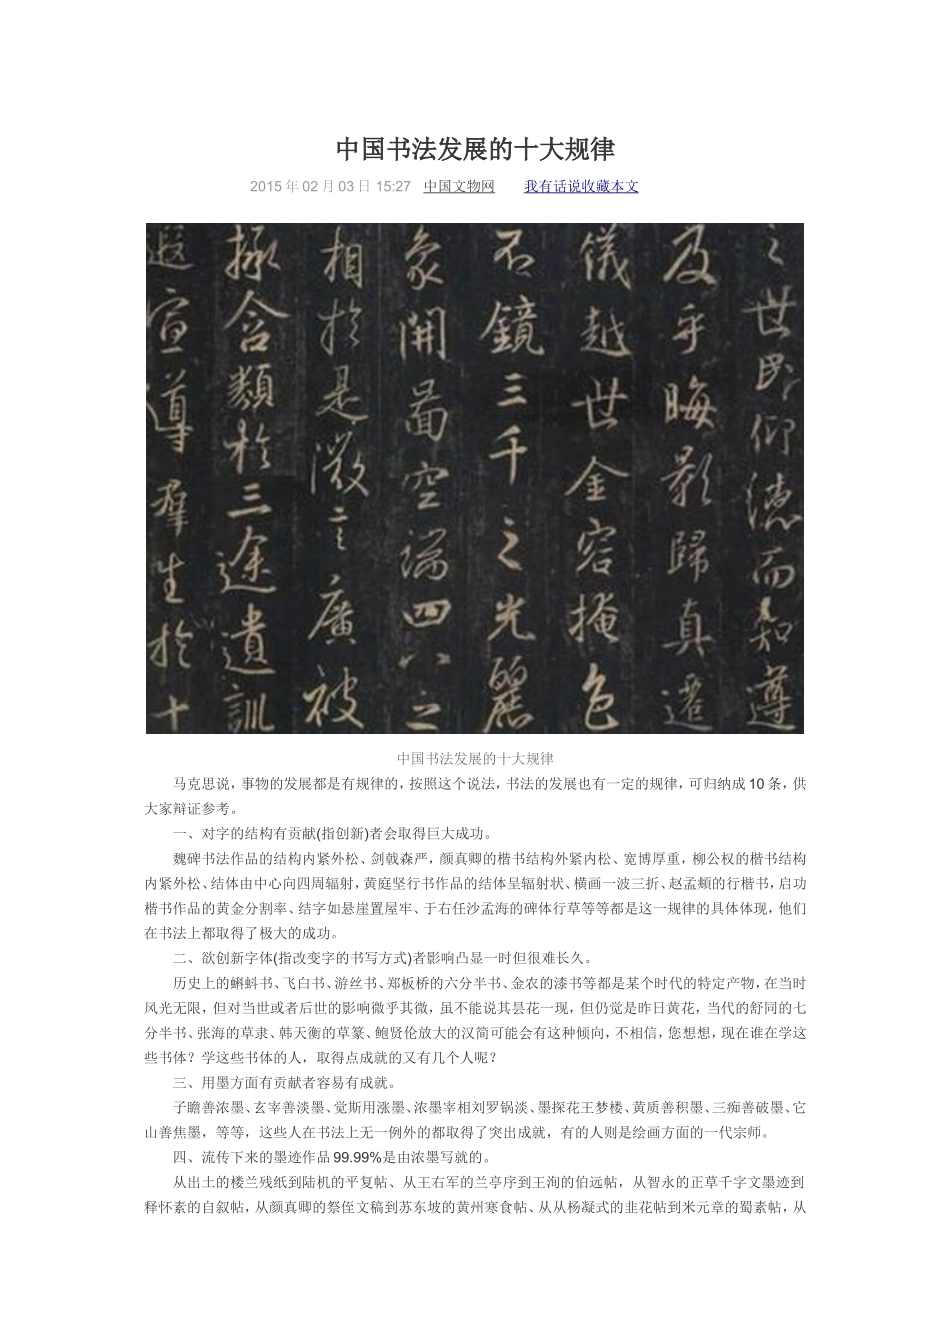 中国书法发展的十大规律
2015年02月03日 15:27 中国文物网 我有话说收藏本文
之世民仰德而知遵
及乎晦影歸真遷
儀越世金容掩色
不鏡三千之光麗
象開圖空端四八之
相於是微言廣被
拯含類於三途遺訓
遐宣導群生於十
中国书法发展的十大规律
马克思说，事物的发展都是有规律的，按照这个说法，书法的发展也有一定的规律，可归纳成 10 条，供
大家辩证参考。
一、对字的结构有贡献(指创新)者会取得巨大成功。
魏碑书法作品的结构内紧外松、剑戟森严，颜真卿的楷书结构外紧内松、宽博厚重，柳公权的楷书结构
内紧外松、结体由中心向四周辐射，黄庭坚行书作品的结体呈辐射状、横画一波三折、赵孟頫的行楷书，启功
楷书作品的黄金分割率、结字如悬崖置屋牢、于右任沙孟海的碑体行草等等都是这一规律的具体体现，他们
在书法上都取得了极大的成功。
二、欲创新字体(指改变字的书写方式)者影响凸显一时但很难长久。
历史上的蝌蚪书、飞白书、游丝书、郑板桥的六分半书、金农的漆书等都是某个时代的特定产物，在当时
风光无限，但对当世或者后世的影响微乎其微，虽不能说其昙花一现，但仍觉是昨日黄花，当代的舒同的七
分半书、张海的草隶、韩天衡的草篆、鲍贤伦放大的汉简可能会有这种倾向，不相信，您想想，现在谁在学这
些书体？学这些书体的人，取得点成就的又有几个人呢？
三、用墨方面有贡献者容易有成就。
子瞻善浓墨、玄宰善淡墨、觉斯用涨墨、浓墨宰相刘罗锅淡、墨探花王梦楼、黄质善积墨、三痴善破墨、它
山善焦墨，等等，这些人在书法上无一例外的都取得了突出成就，有的人则是绘画方面的一代宗师。
四、流传下来的墨迹作品 99.99%是由浓墨写就的。
从出土的楼兰残纸到陆机的平复帖、从王右军的兰亭序到王洵的伯远帖，从智永的正草千字文墨迹到
释怀素的自叙帖，从颜真卿的祭侄文稿到苏东坡的黄州寒食帖、从从杨凝式的韭花帖到米元章的蜀素帖，从